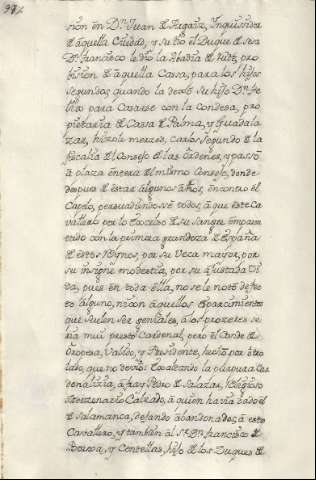 sion en Dn Juan de
de aquella Ciudad, y su tio el Duque de
Dn Francisco le dio la Abadia de pro
bision de aquella Cassa, para los hijos
segundos, quando la dexò su hijo Dn
para casarse con la Condesa, pro
pietaria de Cassa de Palma, y Guadala
zar, hizole merced, Carlos segundo de la
fiscalia del Consejo de las Ordenes, y passò
à plaza en el mismo Consejo, donde
despues de estar algunos años, encontrò el
Capelo, persuadiendose todos, à que este Ca
vallero por lo excelso de su sangre empare
tado con la primera grandeza de España
de estos Reynos, por su Veca mayor, por
su insigne modestia, por su ajustada Vi
da, pues en toda ella, no se le notò defec
to alguno, ni aun aquellos esparcimientos
que suelen ser geniales, à los prozeres se
ria mui presto Cardenal, pero el Conde de
Oropesa, Valido, y Presidente, hechò por otro
lado, que no devio; exaltando la purpura Car
denalizia, à fray Pedro de Salazar, Religioso
Mercenario Calzado, à quien havia dado el
de Salamanca, dejando abandonados, à este
Cavallero, y tambien al Sr Dn francisco de
Borja, y Centellas, hijo de los Duques de